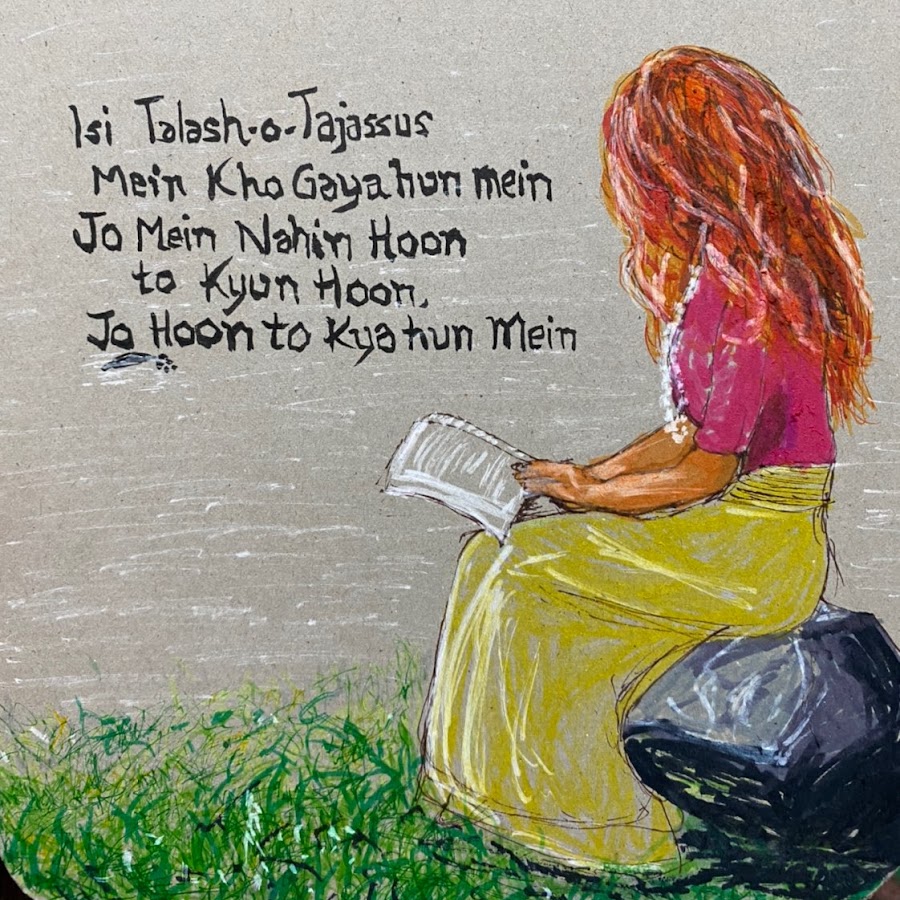 Isi Talash-o-Tajassus
Mein Kho Gaya hun mein
Jo Mein Nahin Hoon
to Kyun Hoon,
Jo Hoon to Kya hun Mein